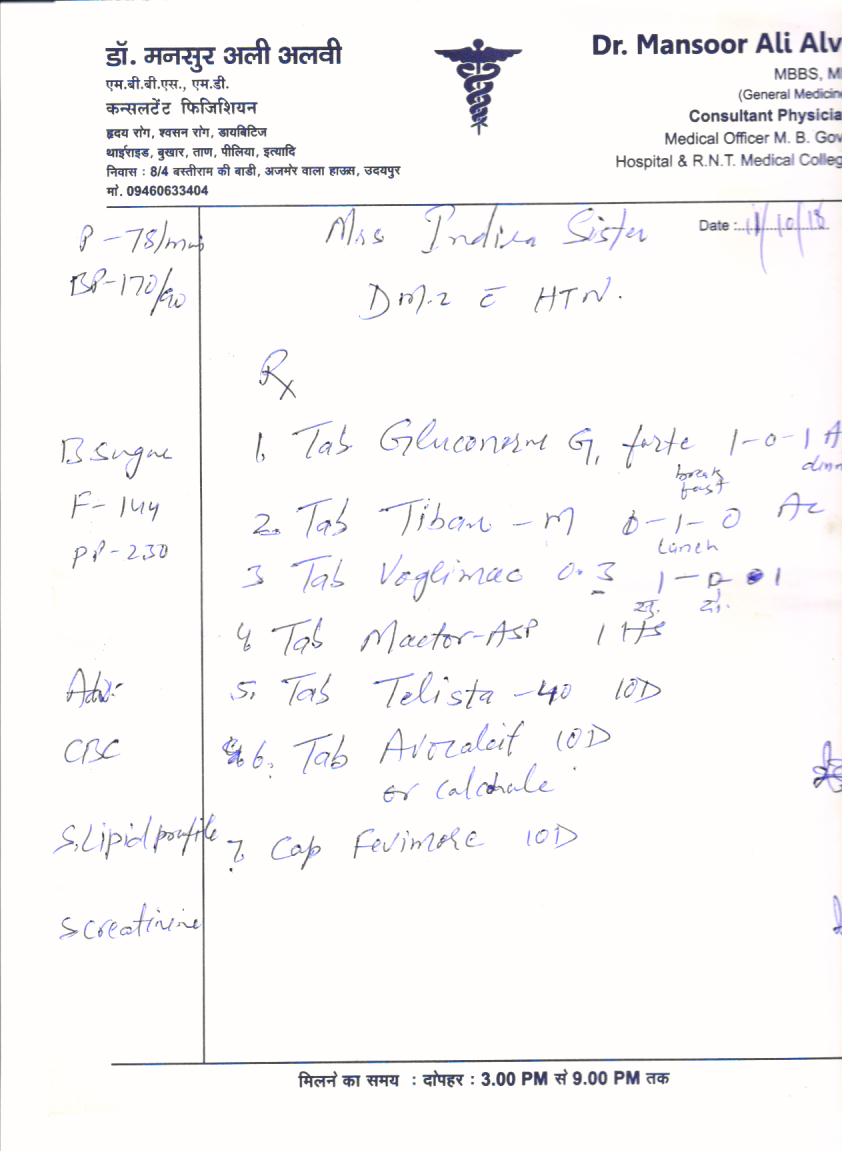 डॉ. मनसुर अली अलवी
एम.बी.बी.एस., एम.डी.
कन्सलटेंट फिजिशियन
हृदय रोग, श्वसन रोग, डायबिटिज
थाईराइड, बुखार, ताण, पीलिया, इत्यादि
निवास : 8/4 बस्तीराम की बाडी, अजमेर वाला हाऊस, उदयपुर
मो. 09460633404
Dr. Mansoor Ali Alv
MBBS, M
(General Medicin
Consultant Physicia
Medical Officer M. B. Gov
Hospital & R.N.T. Medical Colleg
Date : 11/10/18
Mrs Indira Sister
P - 78/min
BP - 170/90
DM-2 c̄ HTN.
Rx
B Sugar
F - 144
PP - 230
1. Tab Gluconorm G1 forte 1-0-1 A
break fast
dinn
2. Tab Tiban - M 0-1-0 Ac
Lunch
3 Tab Voglimac 0.3 1-0 1
4 Tab Mactor-ASP 1 HS
Adv:-
5. Tab Telista - 40 1OD
CBC
6. Tab 1OD
or
S. Lipid profile
7. Cap 1OD
S creatinine
मिलने का समय : दोपहर : 3.00 PM से 9.00 PM तक